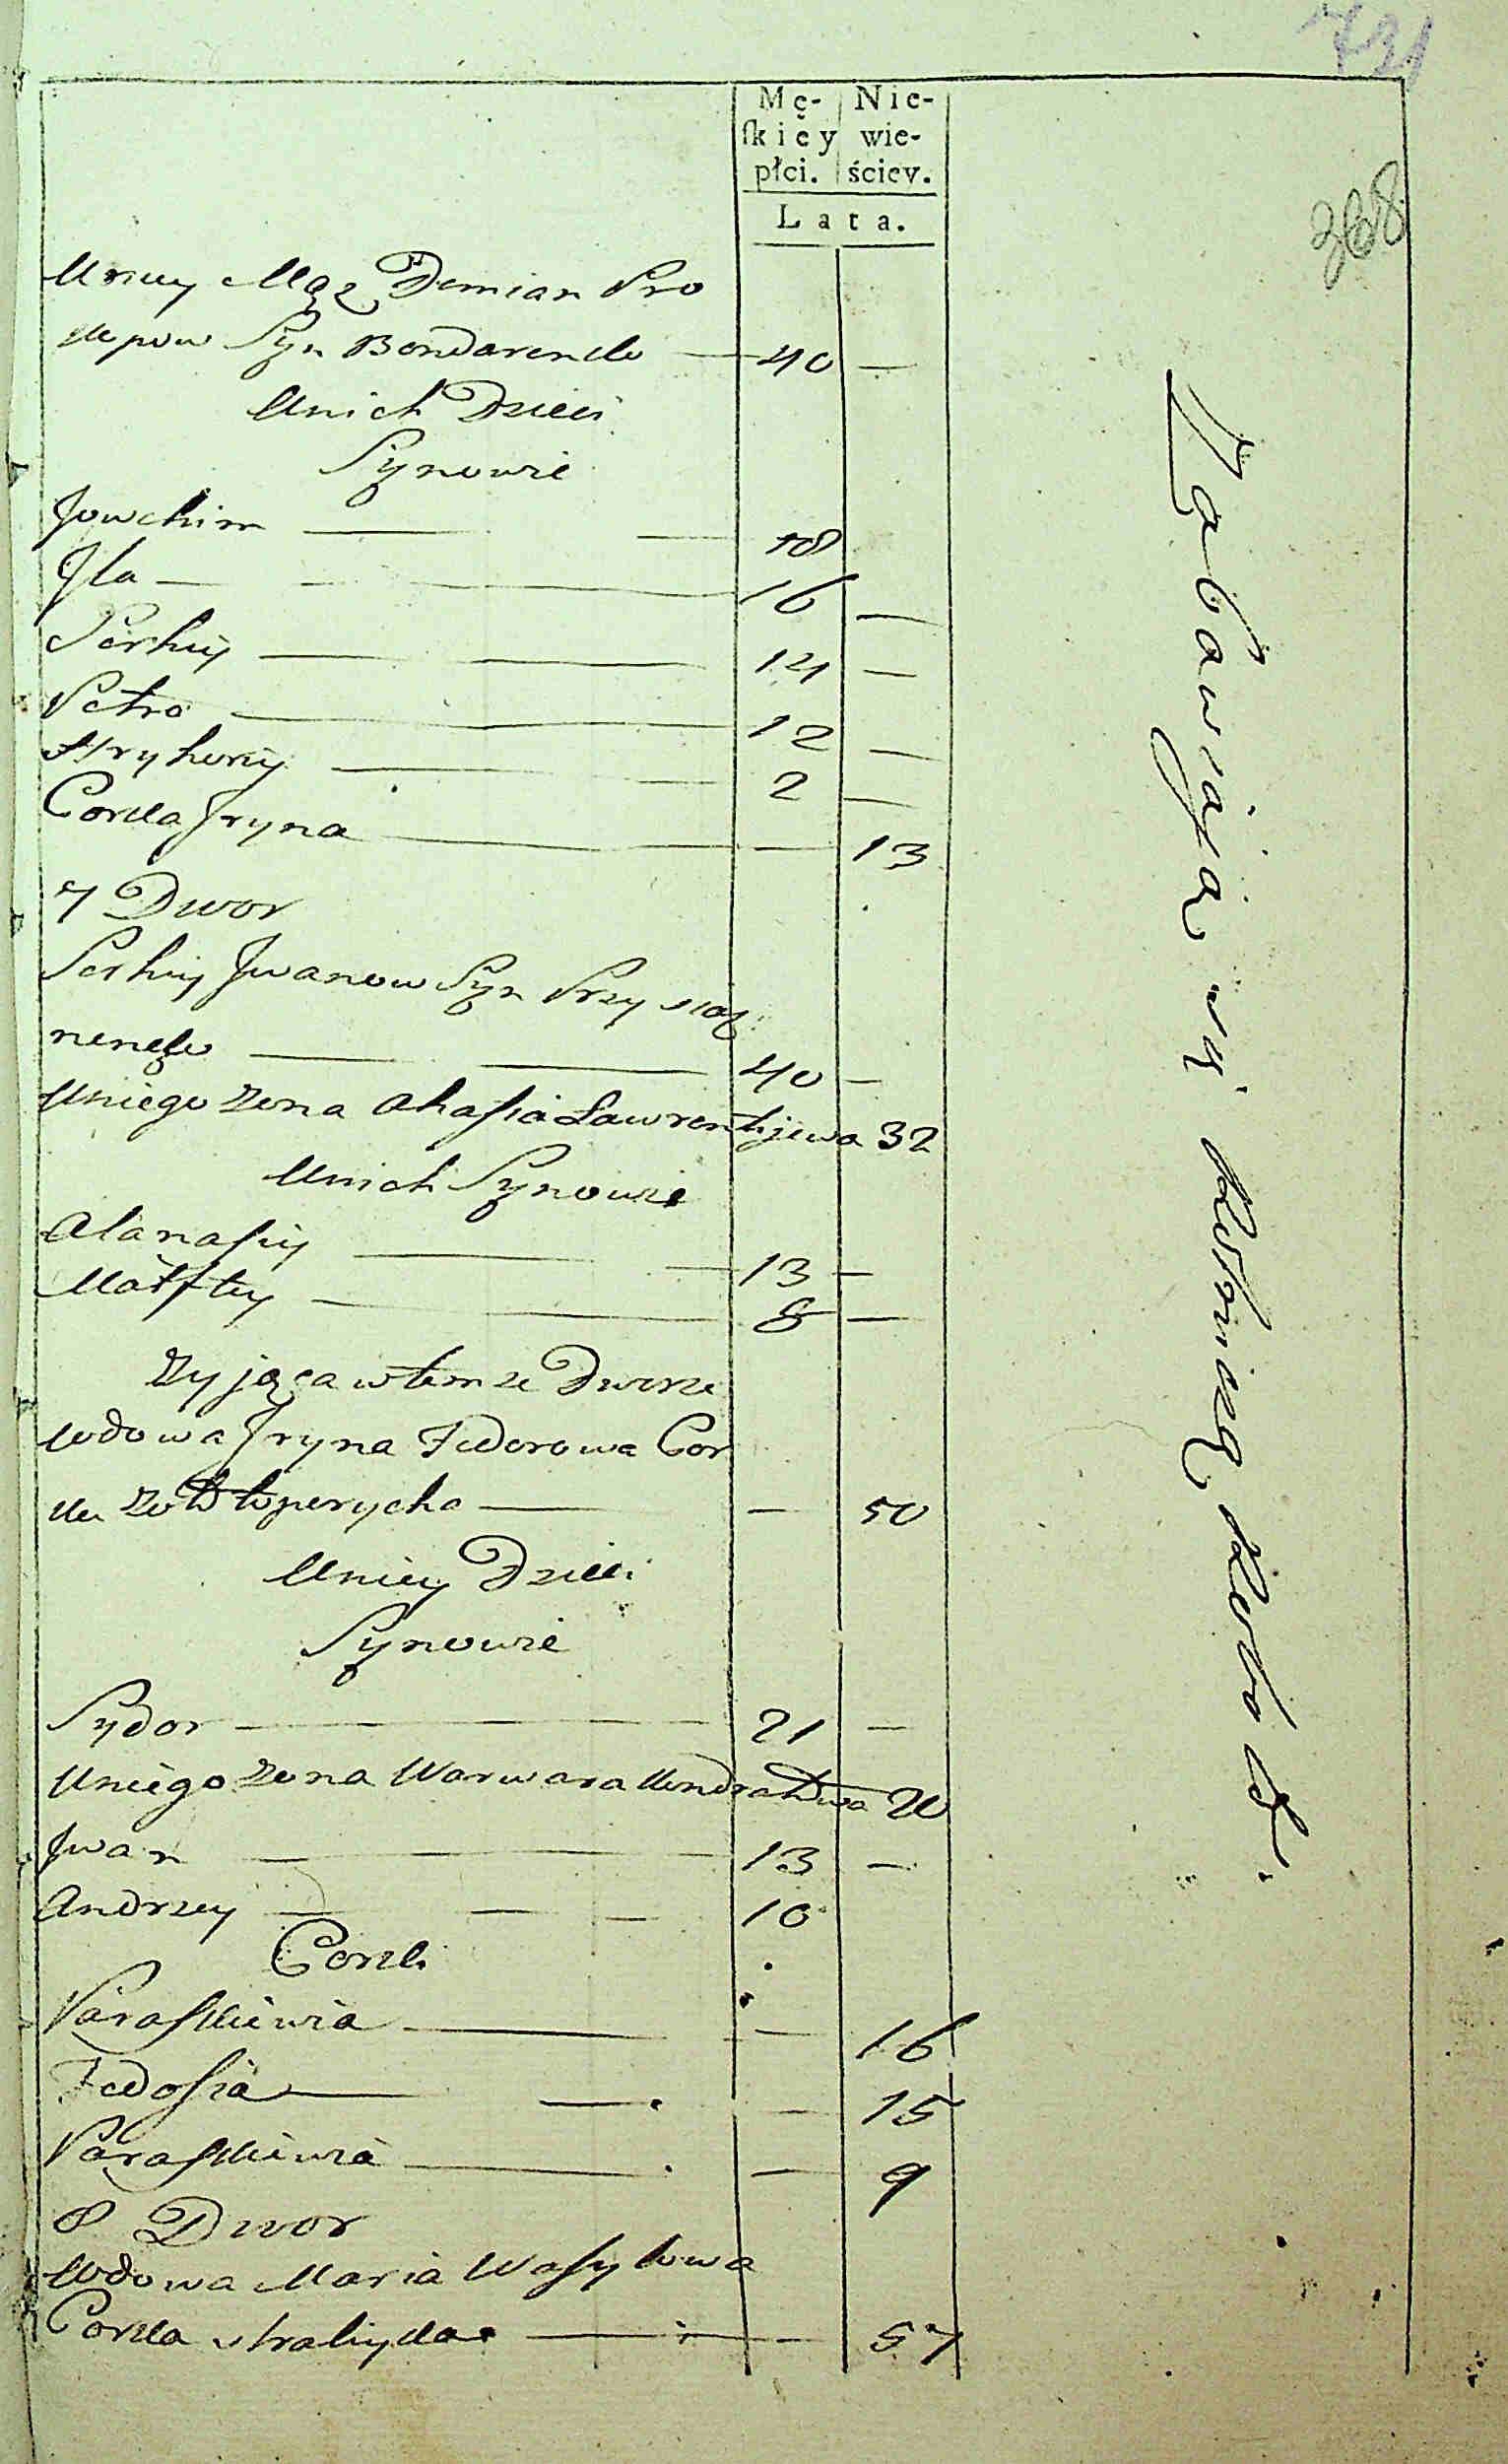 731
368
Mę- Nie-
ſkiéy wie-
płci. ściey.
Lata.
Uniey Mąż Demian Pro
kopow Syn Bondarenko — 40 —
Unich Dzieci
Synowie
Jowchim — 18
Jla — 16 —
Serhiy — 14 —
Petro — 12 —
Hryhoriy — 2 —
Corka Jryna — — 13
7 Dwor
Serhiy Jwanow Syn Przy
nenko — 40 —
Uniego Zona Ahafia Lawrentijewa 32
Unich Synowie
Atanafiy — 13 —
Matftey — 8 —
Zyjąca wtemze Dworze
Wdowa Jryna Fedorowa Cor
ka — — 50
Uniey Dzieci
Synowie
Sydor — 21 —
Uniego Zona Warwara Kondratowa 20
Jwan — 13 —
Andrzey — 10
Corki
Parafkiewia — — 16
Fedofia — — 15
Parafkiewia — — 9
8 Dwor
Wdowa Maria Wafylowa
Corka — — 57
Zabawiają się Rolniczą Robotą.